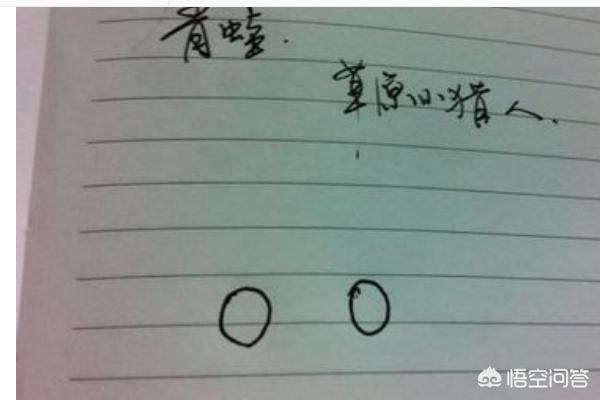 青蛙.
草原小猎人.
悟空问答